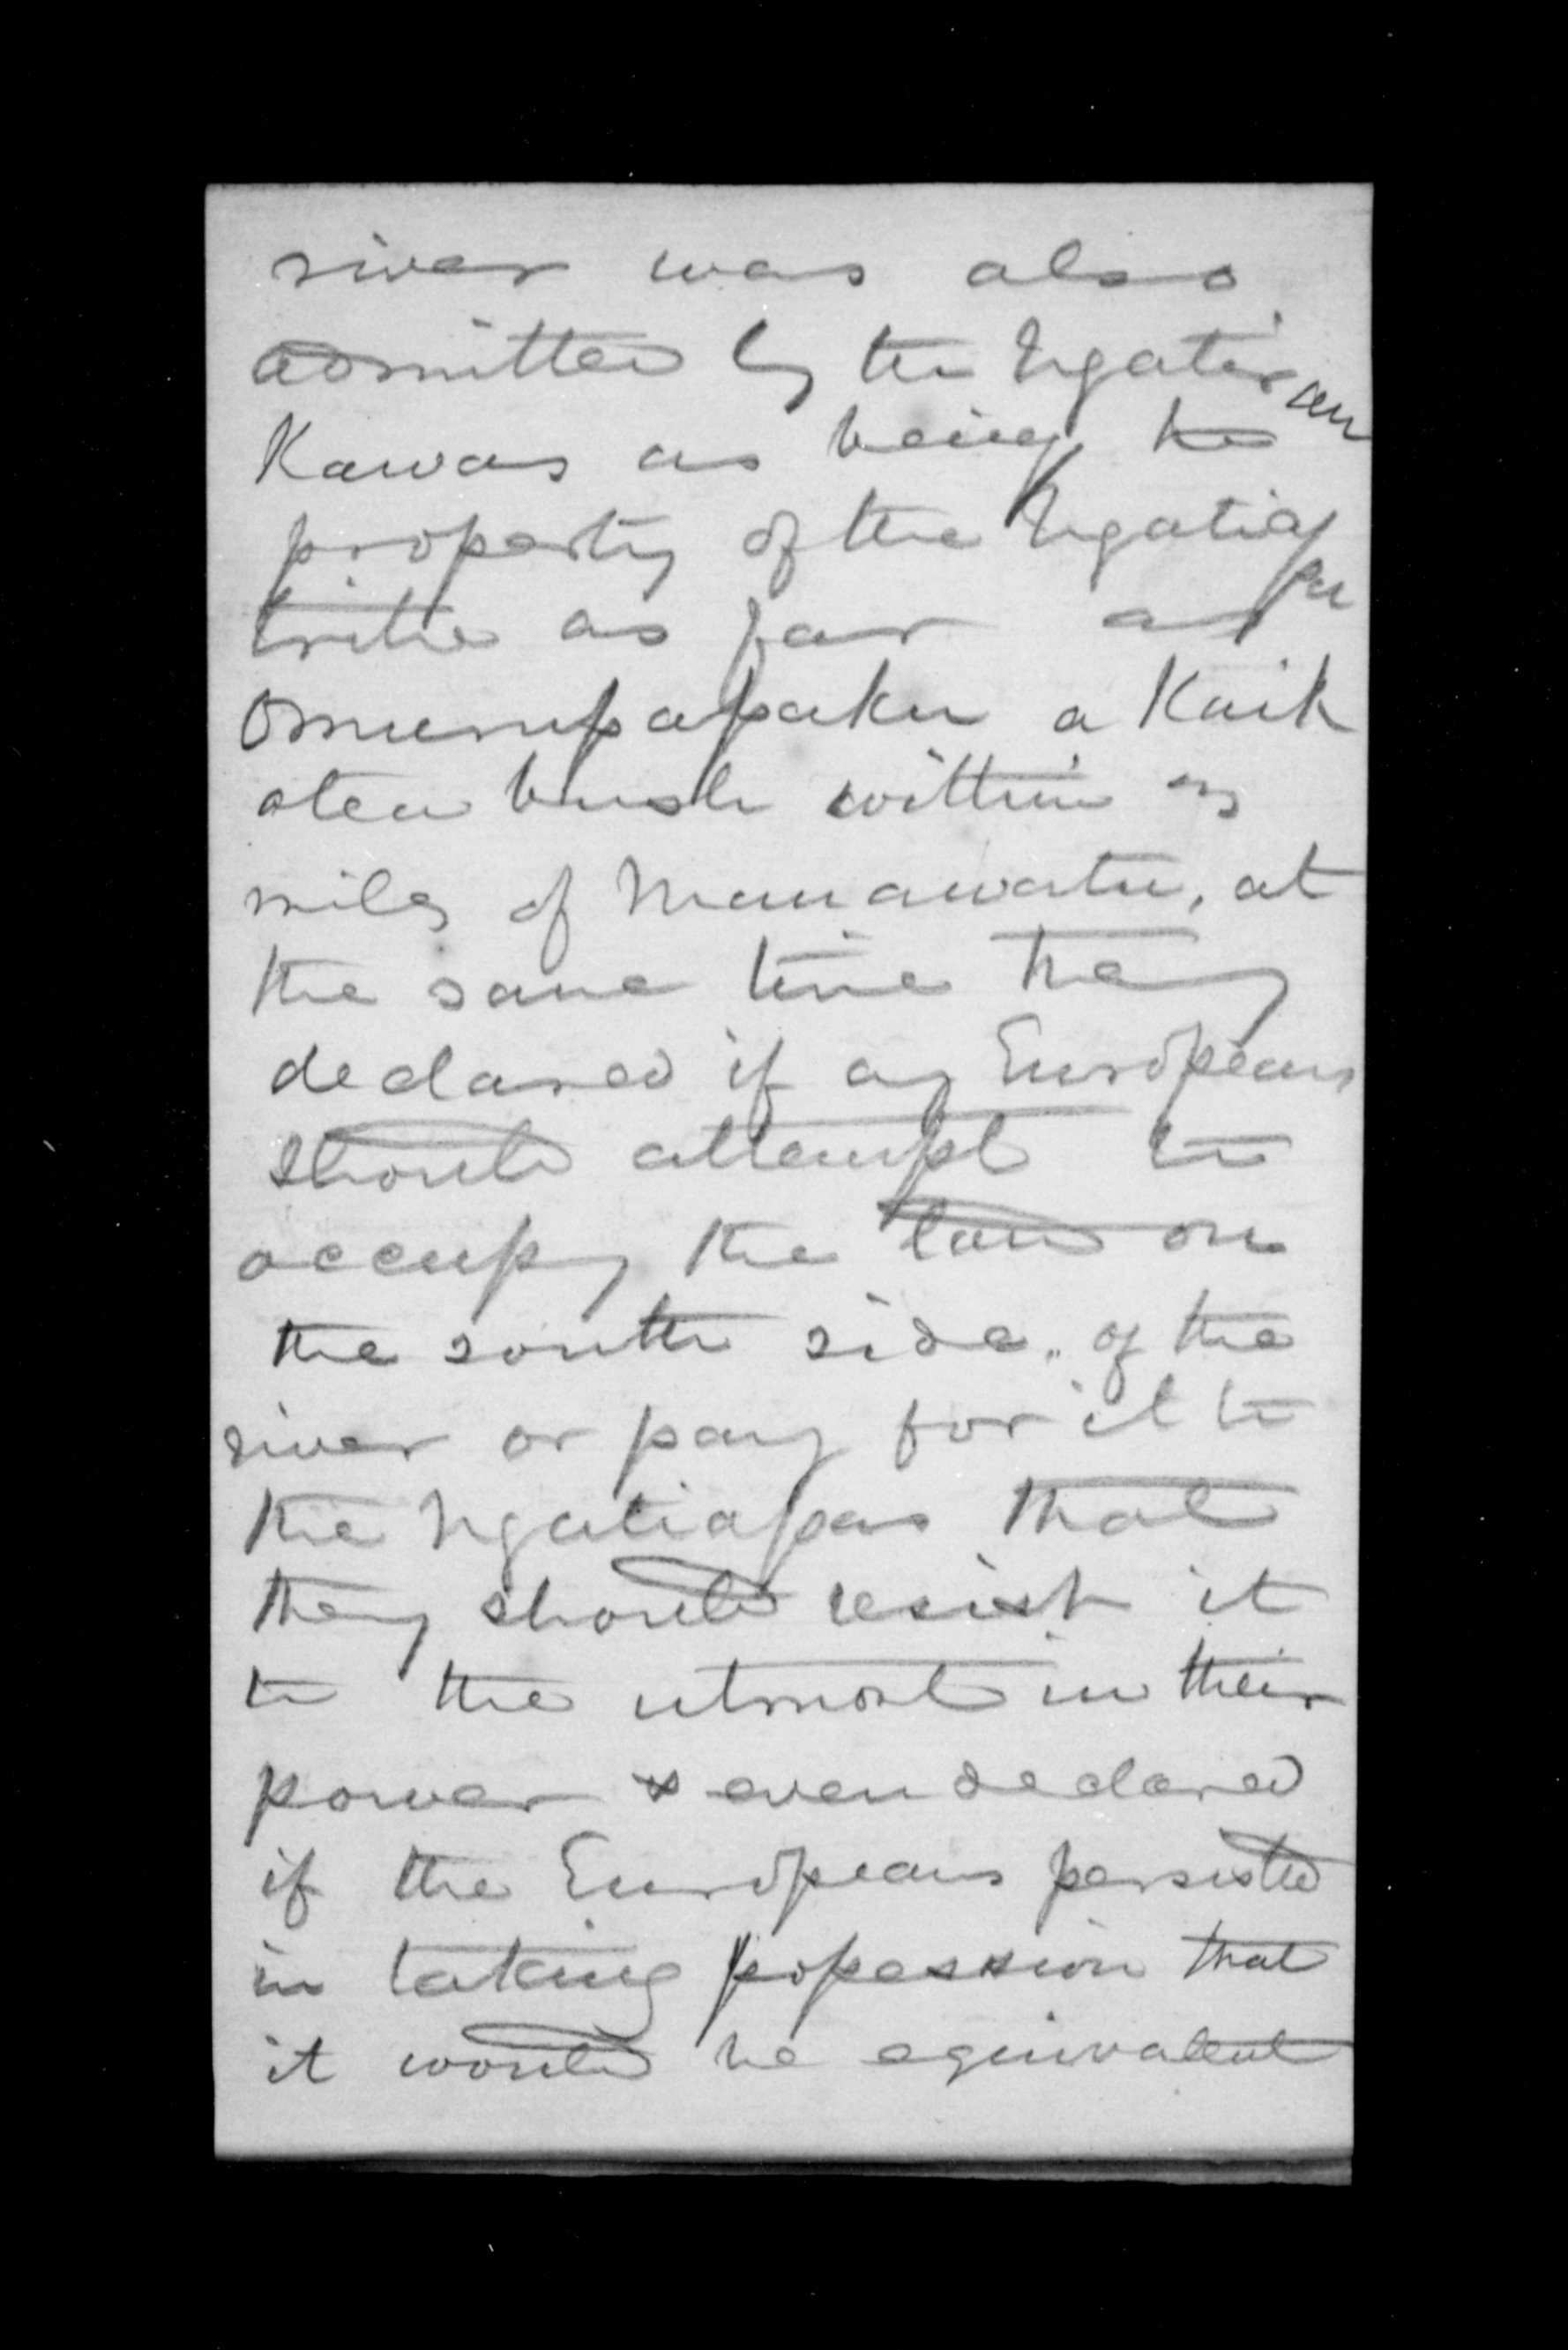 river was also
admitted by the Ngatirau
Kawas as being the
property of the Ngatiapa
tribe as far as
Omurupapaku a Kaik
atea bush within
miles of Manawatu, at
the same time they
declared if any Europeans
should attempt to
occupy the land on
the south side of the
river or pay for it to
the Ngatiapas that
they should resist it
to the utmost in their
power & even declared
if the Europeans persisted
in taking possession that
it would be equivalent